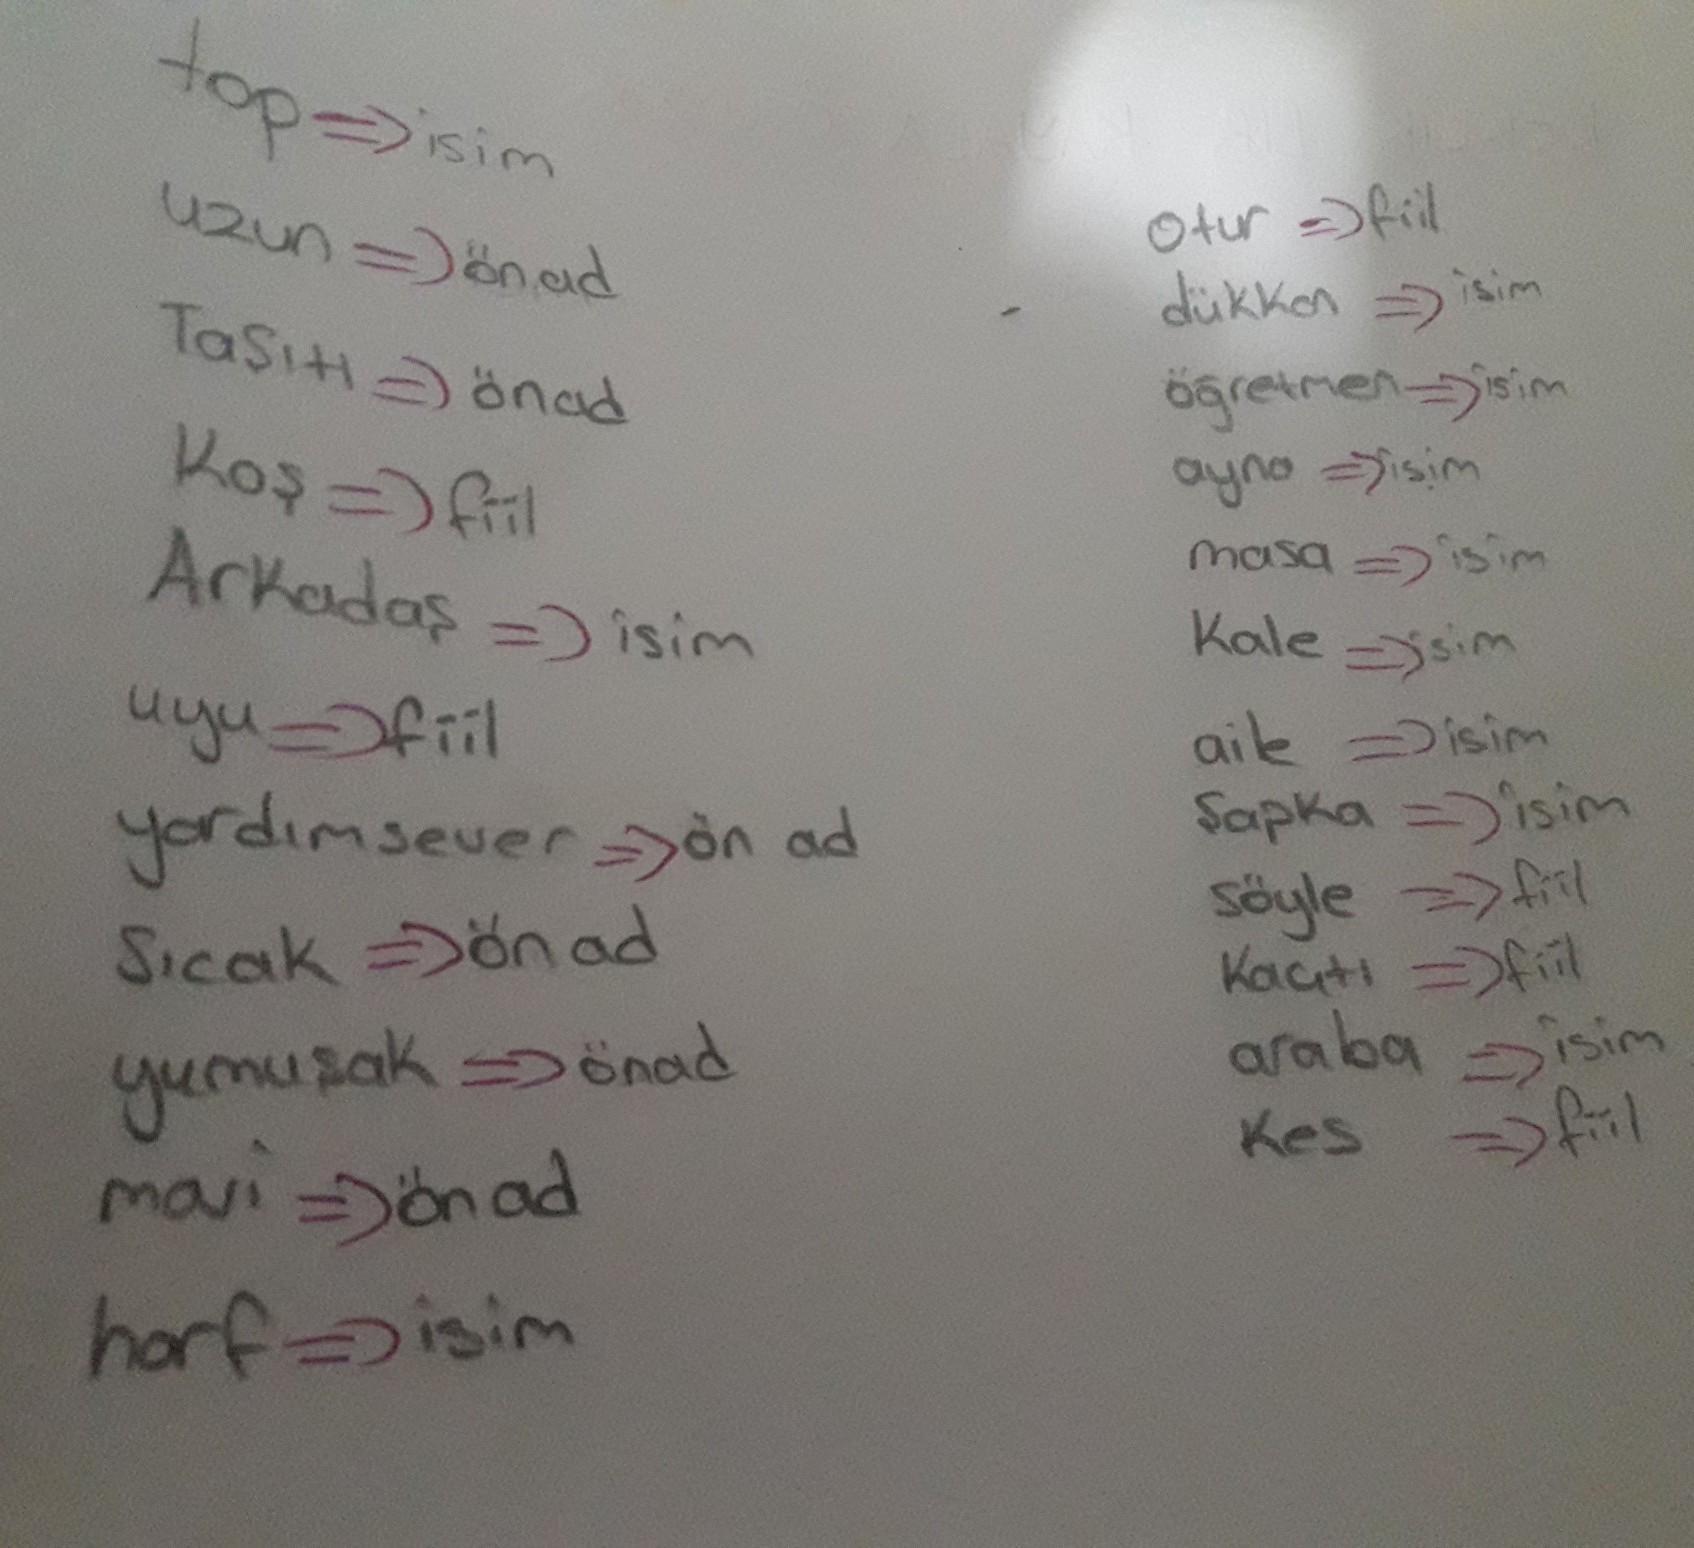 top => isim
uzun => ön ad
Taşıtı => önad
Koş => fiil
Arkadaş => isim
uyu => fiil
yardımsever => ön ad
Sıcak => ön ad
yumuşak => önad
mavi => ön ad
harf => isim
otur => fiil
dükkan => isim
öğretmen => isim
ayna => isim
masa => isim
Kale => isim
aile => isim
Şapka => isim
söyle => fiil
Kaçıtı => fiil
araba => isim
Kes => fiil